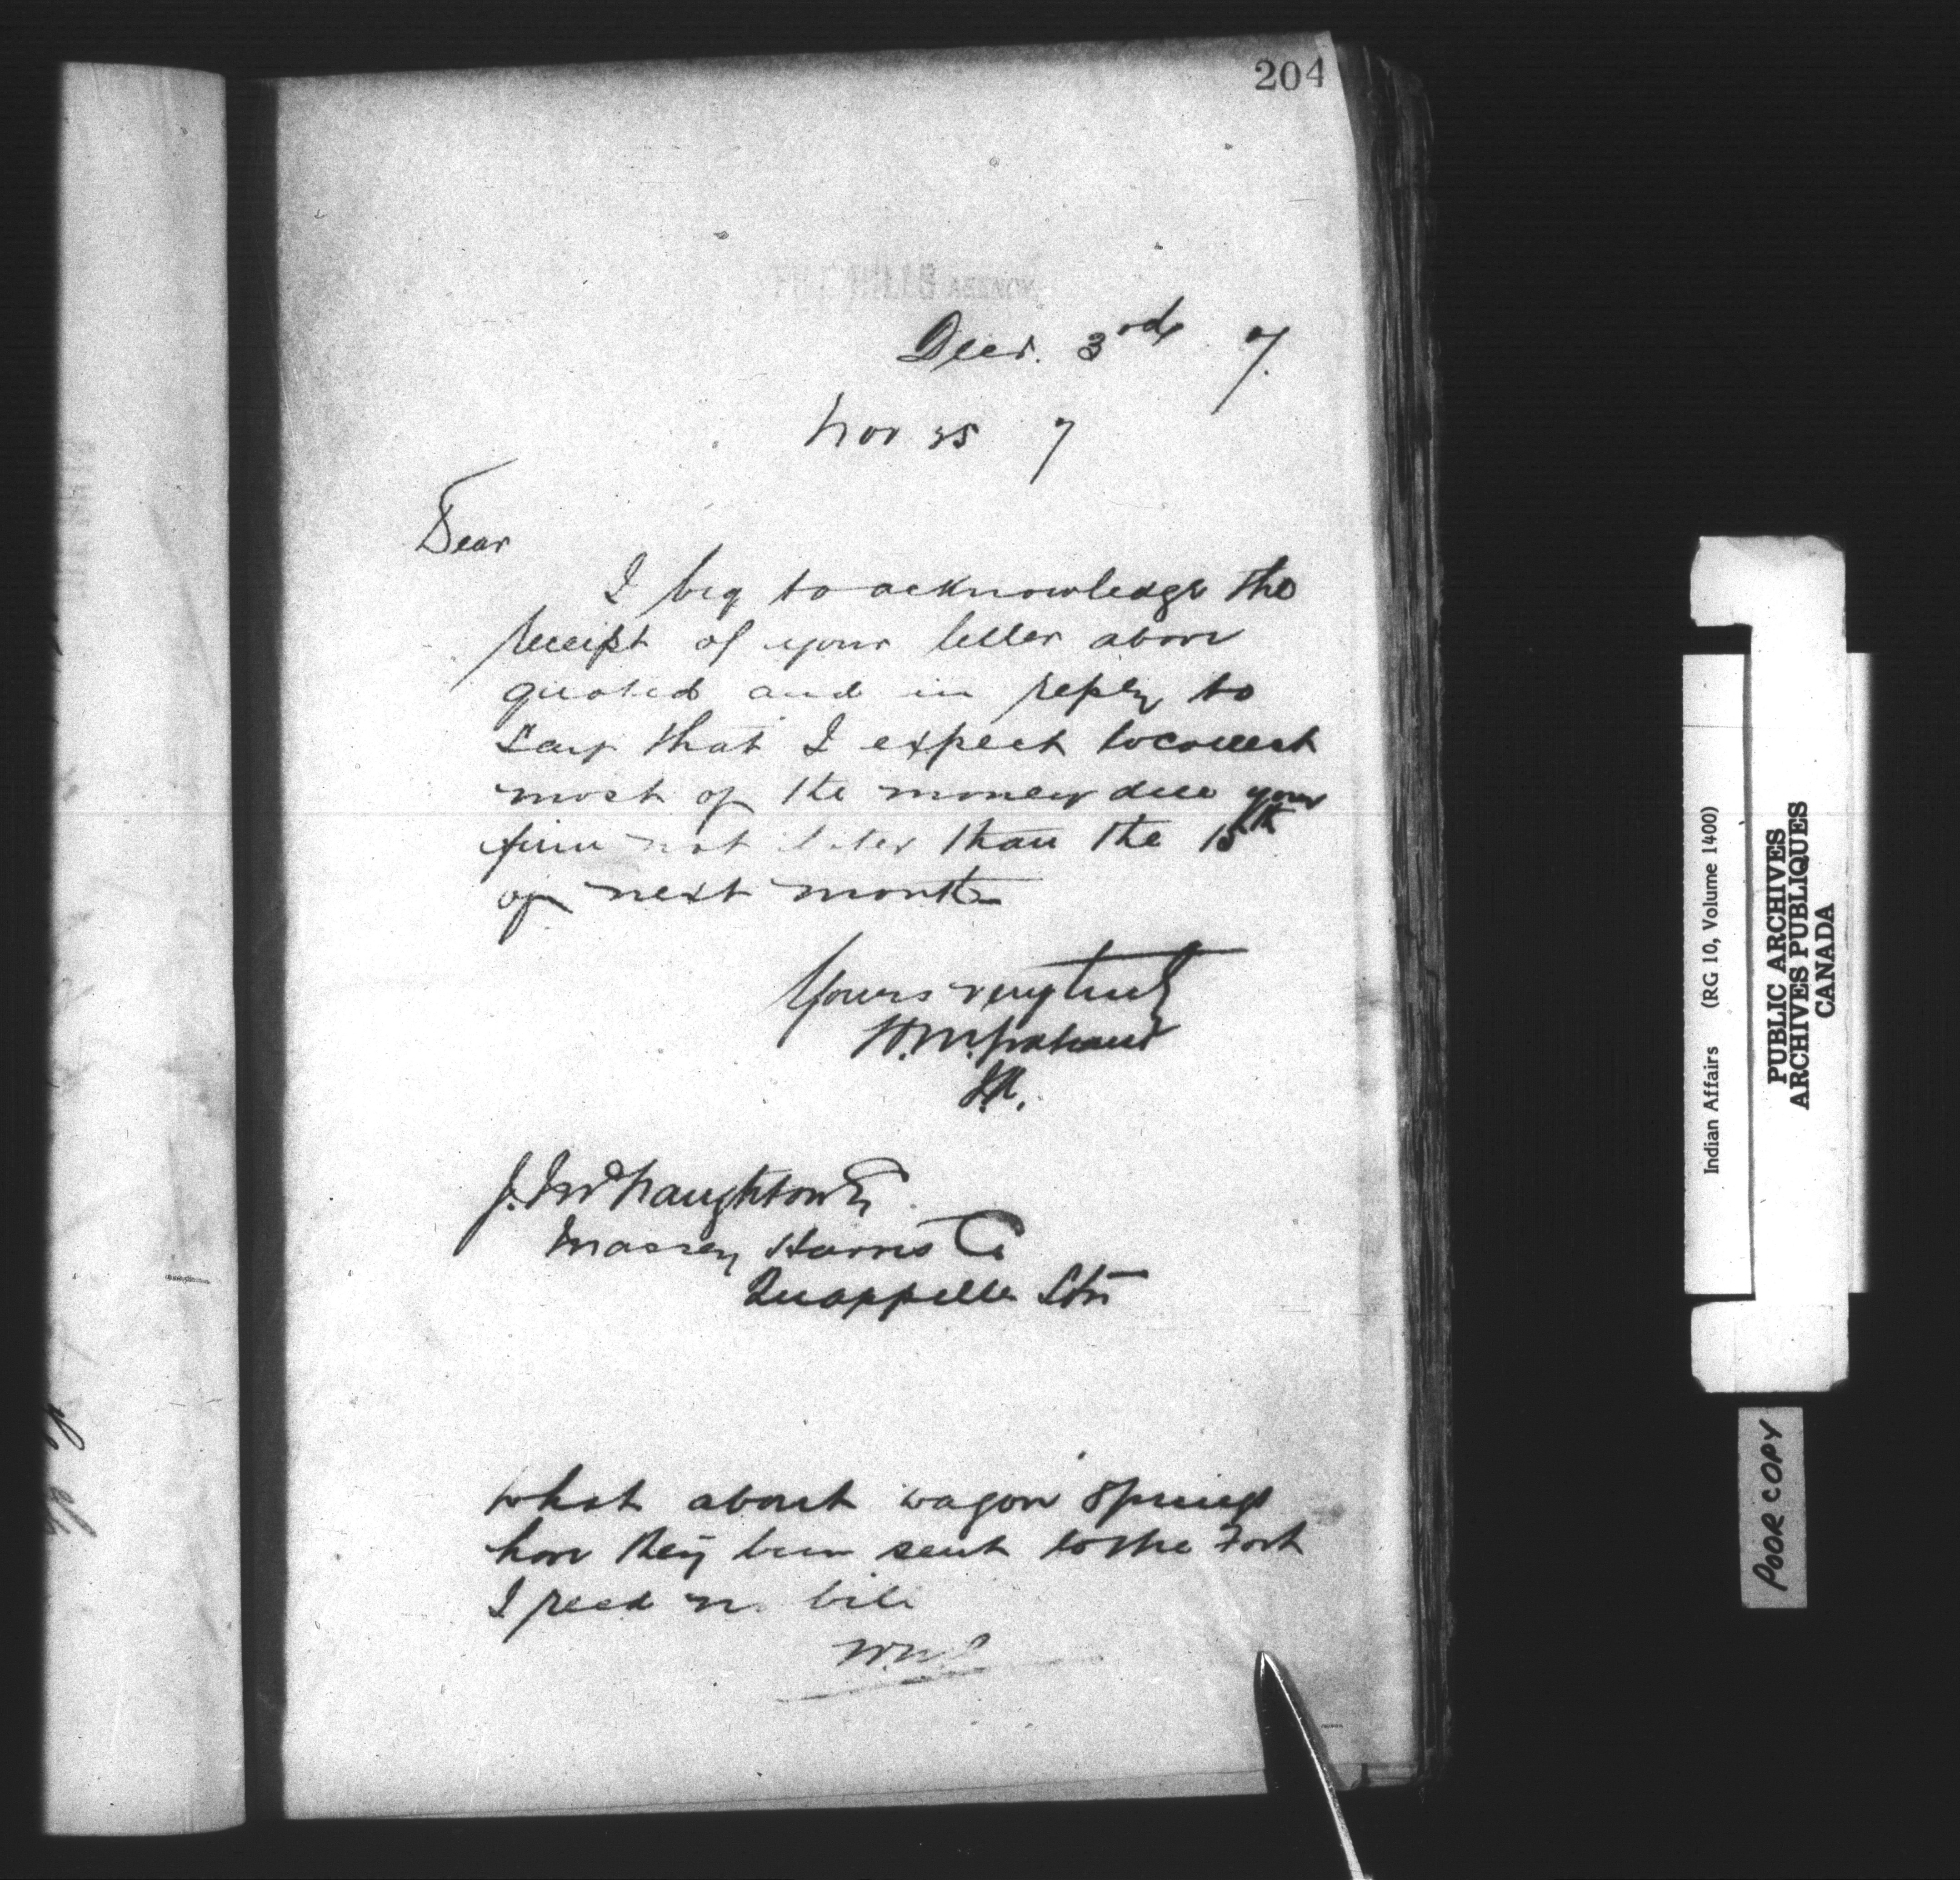 204
FILE HILLS AGENCY
Decr. 3rd 7.
Nov 25 7
Dear
I beg to acknowledge the
receipt of your letter above
quoted and in reply to
say that I expect to collect
most of the money due your
firm not later than the 15th
of next month
Yours very truly
W.M. Graham
I.A.
J. McNaughton Esq
Massey Harris Co
Quappelle Stn
what about wagon springs
have they been sent to the Fort
I recd no bill
Indian Affairs (RG 10, Volume 1400)
PUBLIC ARCHIVES
ARCHIVES PUBLIQUES
CANADA
POOR COPY